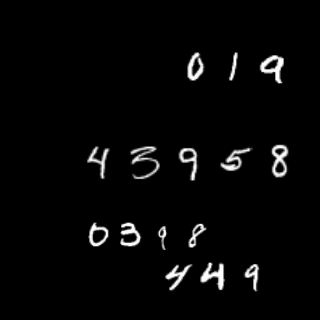 0 1 9
4 3 9 5 8
0 3 9 8
4 4 9